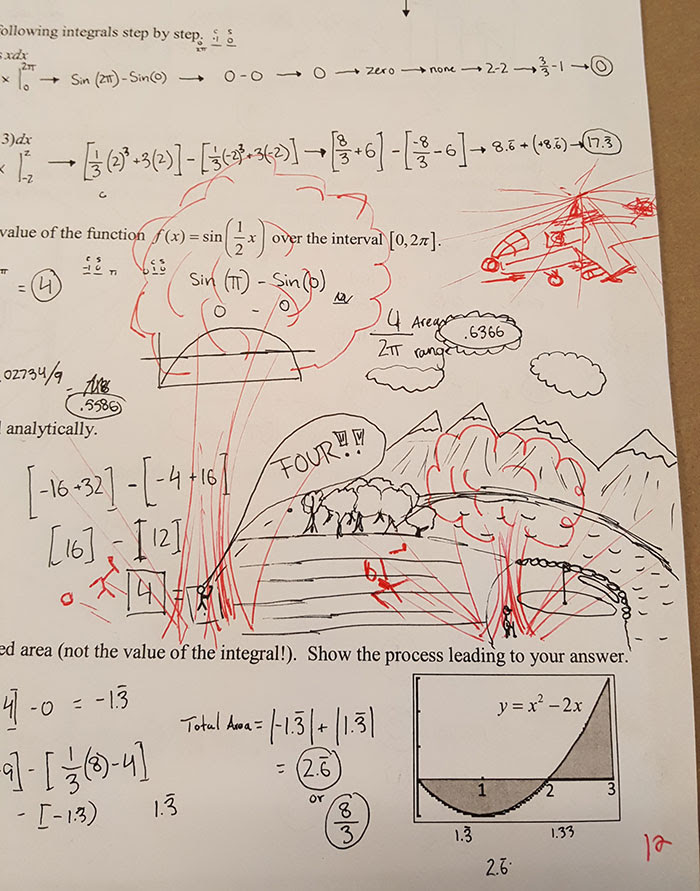 ollowing integrals step by step.
c s
-1 0
x dx
x |₀^2π → Sin (2π) - Sin(0) → 0 - 0 → 0 → zero → none → 2-2 → 3/3 - 1 → 0
3)dx
x |₋₂^2 → [1/3 (2)³ + 3(2)] - [1/3(-2)³ + 3(-2)] → [8/3 + 6] - [-8/3 - 6] → 8.6̄ + (+8.6̄) → 17.3̄
c
value of the function f(x) = sin(1/2 x) over the interval [0, 2π].
= 4
Sin (π) - Sin(0)
0 - 0
4/2π Area range .6366
02734/9
.5586
analytically.
FOUR!!!
[-16+32] - [-4+16]
[16] - [12]
4 =
ed area (not the value of the integral!). Show the process leading to your answer.
4] - 0 = -1.3̄
Total Area = |-1.3̄| + |1.3̄|
9] - [1/3(8) - 4]
= 2.6̄
- [-1.3) 1.3̄
or
8/3
y = x² - 2x
1 2 3
1.3̄ 1.33
2.6̄
12